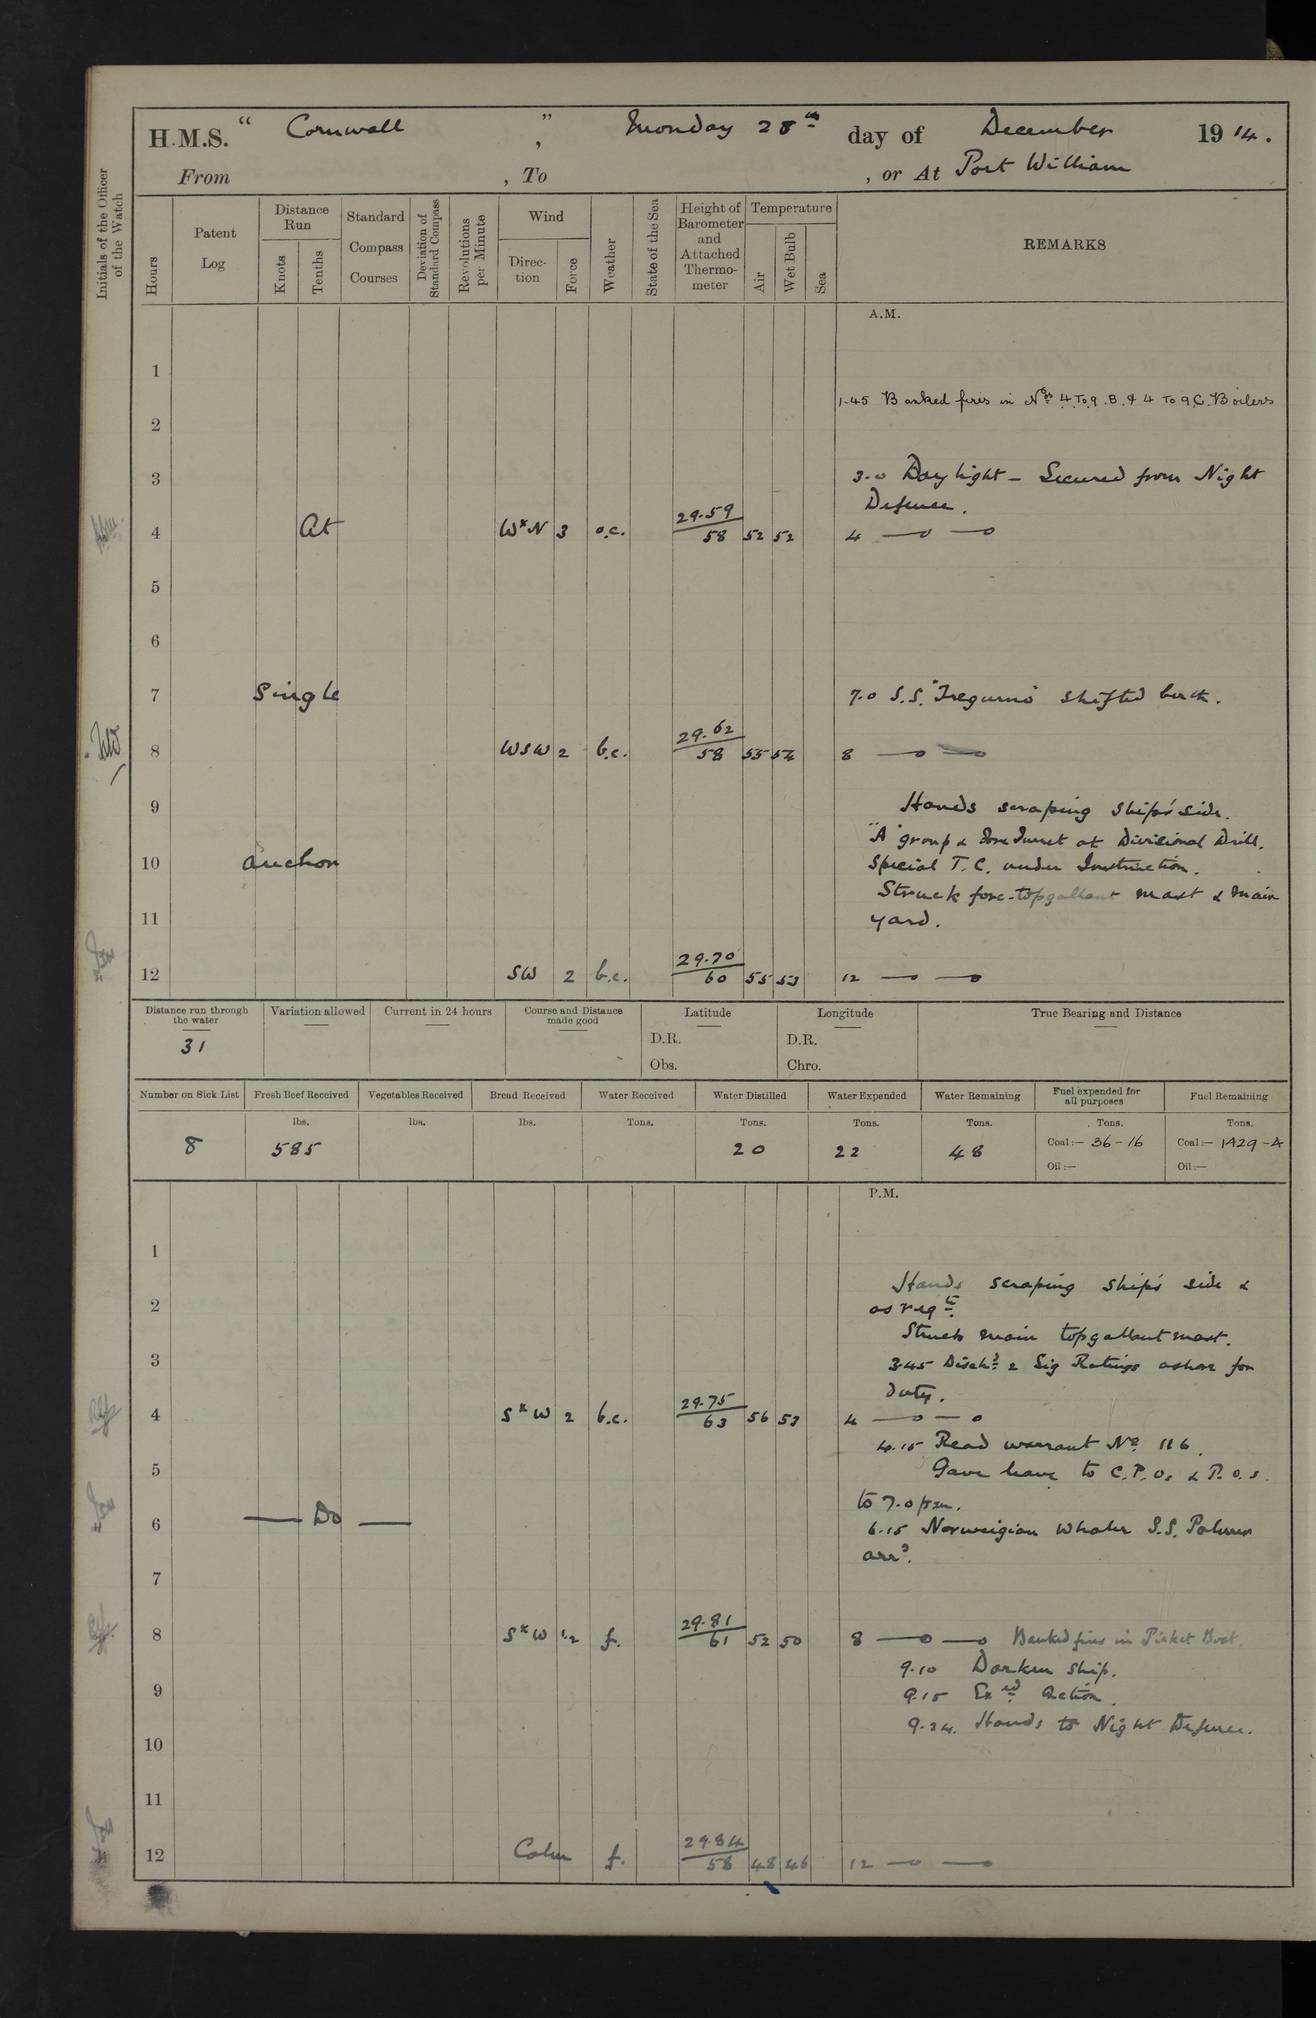 H.M.S. " Cornwall ", Monday 28th day of December 1914.
From , To , or At Port William
Initials of the Officer of the Watch
Hours
Patent Log
Distance Run
Knots
Tenths
Standard Compass Courses
Deviation of Standard Compass
Revolutions per Minute
Wind
Direction
Force
Weather
State of the Sea
Height of Barometer and Attached Thermometer
Temperature
Air
Wet Bulb
Sea
REMARKS
A.M.
1
1.45 Banked fires in Nos 4 to 9 B. & 4 to 9 C. Boilers
2
3 3.0 Daylight – Secured from Night
Defence.
4 At WxN 3 o.c. 29.59 58 52 52 4
5
6
7 Single 7.0 S.S. shifted berth.
8 WSW 2 b.c. 29.62 58 55 54 8
9 Hands scraping ship's side.
"A" group & Fore Turret at Divisional Drill.
10 anchor Special T.C. under Instruction.
Struck fore-topgallant mast & main
11 yard.
12 SW 2 b.c. 29.70 60 55 53 12
Distance run through the water
31
Variation allowed
Current in 24 hours
Course and Distance made good
Latitude
D.R.
Obs.
Longitude
D.R.
Chro.
True Bearing and Distance
Number on Sick List Fresh Beef Received Vegetables Received Bread Received Water Received Water Distilled Water Expended Water Remaining Fuel expended for all purposes Fuel Remaining
lbs. lbs. lbs. Tons. Tons. Tons. Tons. Tons. Tons.
8 585 20 22 48 Coal:– 36-16 Coal:– 1429-4
Oil:– Oil:–
P.M.
1
Hands scraping ship's side &
2 as reqte.
Struck main topgallant mast.
3 3.45 Dischd 2 Sig Ratings ashore for
duty.
4 SxW 2 b.c. 29.75 63 56 53 4
4.15 Read warrant No 116.
5 Gave leave to C.P.Os & P.O.s
to 7.0 pm.
6 Do 6.15 Norweigian Whaler S.S.
arrd.
7
8 SxW 1.2 f. 29.81 61 52 50 8 Banked fires in Picket Boat.
9.10 Darken ship.
9 9.15 Exed Action.
9.24. Hands to Night Defence.
10
11
12 Calm f. 29.84 58 48 46 12